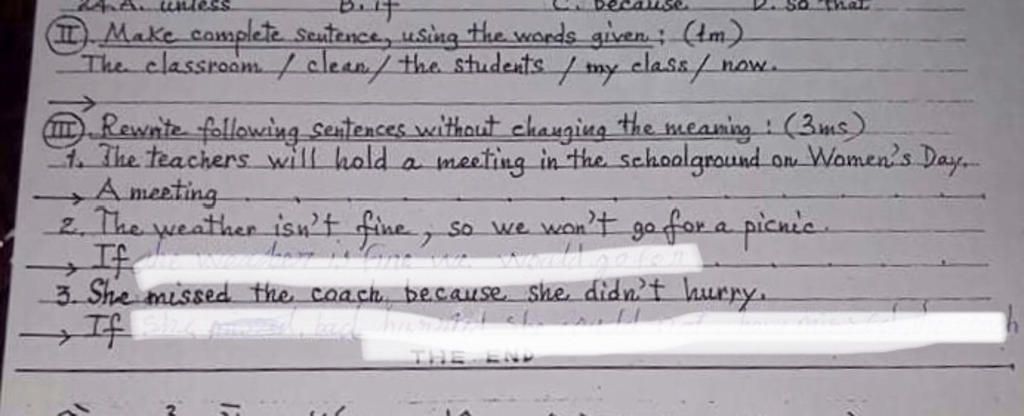 24. A. unless B. if C. because D. so that
II. Make complete sentence, using the words given: (1m)
The classroom / clean / the students / my class / now.
→
III. Rewrite following sentences without changing the meaning: (3ms)
1. The teachers will hold a meeting in the schoolground on Women's Day.
→ A meeting
2. The weather isn't fine, so we won't go for a picnic.
→ If
3. She missed the coach because she didn't hurry.
→ If
THE END